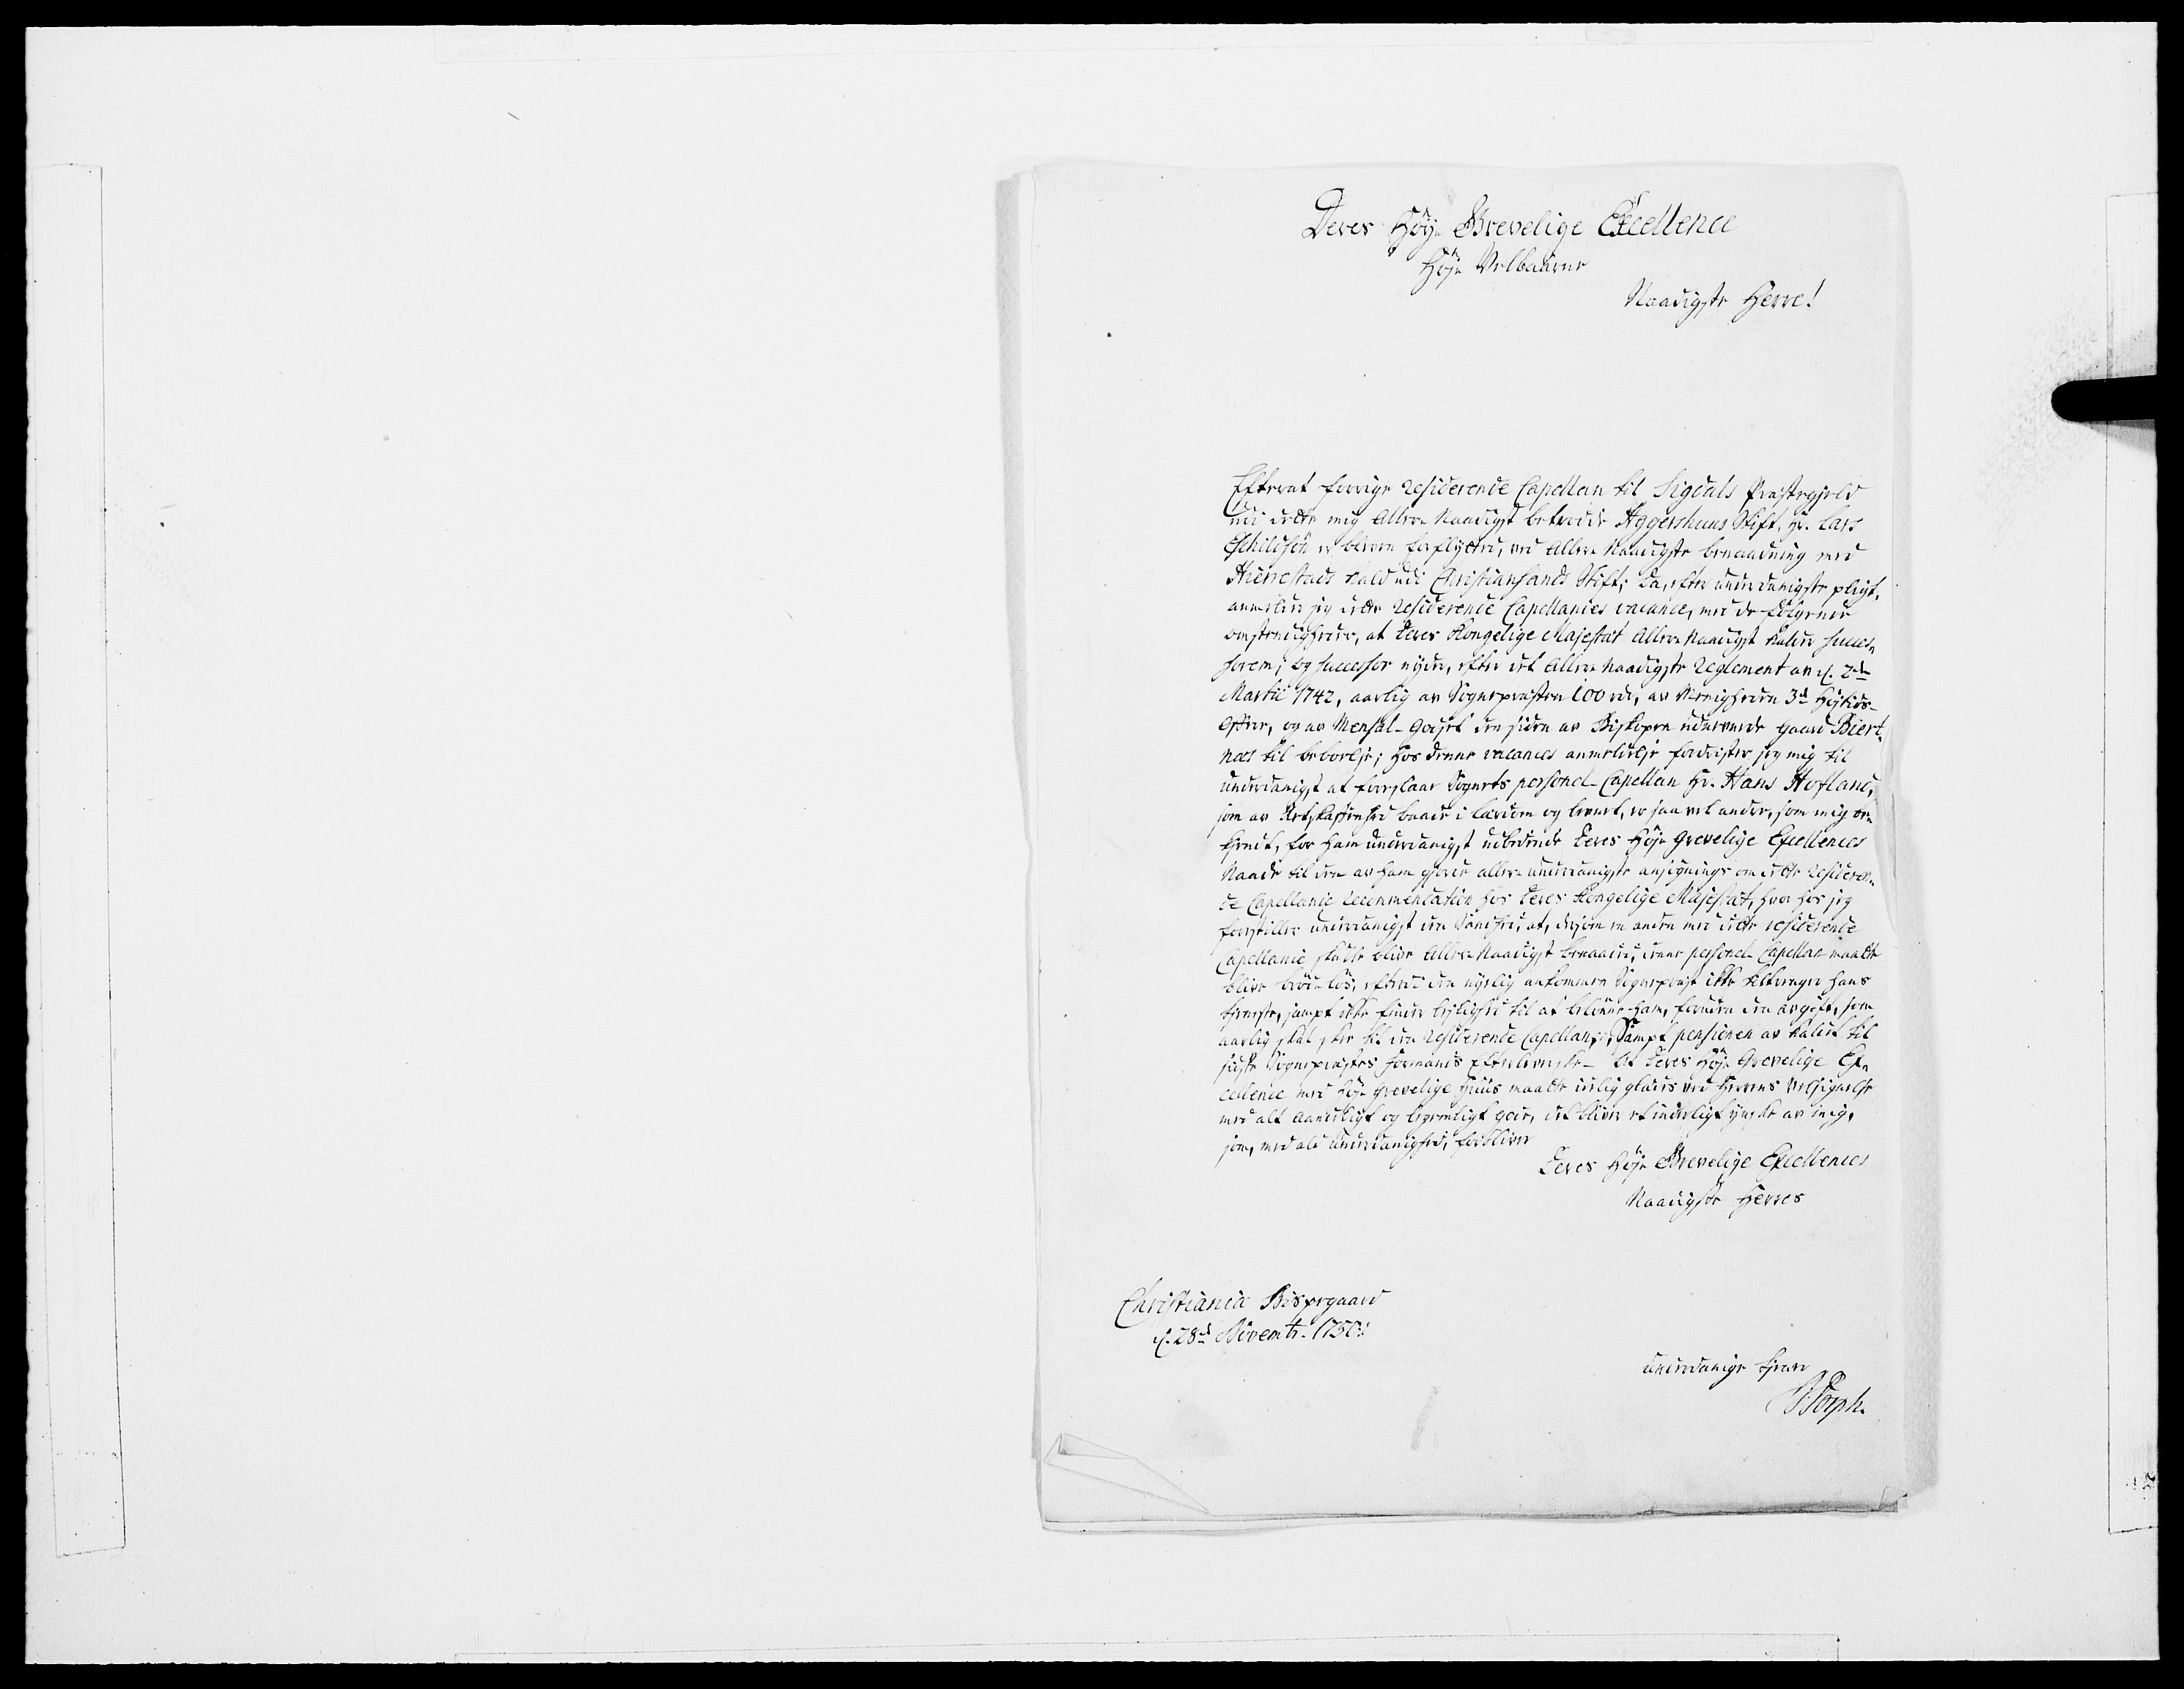 Deres Høje Grevelige Excellence
Høje Velbaarne
Naadigste Herre!
Efterat forrige residerende Capellan til Sigdals Præstegjeld
udi dette mig Allernaadigst betroede Aggershuus Stift, Hr. Lars
Eschildsøn er bleven forflyttet, ved Allernaadigste benaadning med
Hierrestads Kald udi Christiansands Stift; Da, efter underdanigste pligt,
anmelder jeg dette residerende Capellanies vacance, med de følgende
omstendigheder, at Deres Kongelige Majestæt Allernaadigst kalder succes-
sorem; og successor nyder, efter det Allernaadigste Reglement av d. 2de
Martii 1742, aarlig av Sognepræsten 100 rdr, av Menigheden 3de Højtids-
Offere, og av Mensal-Godset den siden av Biskopen udnævnde gaard Biert-
næs til beboelse; Hos denne vacances anmeldelse fordrister jeg mig til
underdanigst at foreslaae Sognets personel-Capellan Hr. Hans Hofland,
som av Retskaffenhed baade i Lærdom og levnet, er saavel andre, som mig be-
kjendt, for ham underdanigst udbedende Deres Høje Grevelige Excellences
Naade til den av ham gjorde allerunderdanigste ansøgnings om dette Residere-
de Capellanie recommendation hos Deres Kongelige Majestæt, hvor hos jeg
forestiller underdanigst den Sandhed, at, dersom en anden med dette residerende
Capellanie skulle blive Allernaadigst benaadet, denne personel-Capellan maatte
blive brød-løs, efterdi den nylig ankommen Sognepræst ikke tiltrenger hans
tjeneste, sampt ikke finder lejlighed til at belønne ham, foruden den avgift, som
aarlig skal skee til den Residerende Capellan, Sampt pensionen av Kaldet til
sidste Sognepræstes Formands Efterleverske. At Deres Høje Grevelige Ex-
cellence med Høje Grevelige Huus maatte idelig glædes ved Herrens Velsignelse
med alt aandeligt og legemligt gode, det bliver et inderligt ynske av mig,
som, med ald underdanighed, forbliver
Deres Høje Grevelige Excellences
Naadigste Herres
Christiania Bispegaard
d. 28de Novemb. 1750.
underdanige tjener
N Dorph.